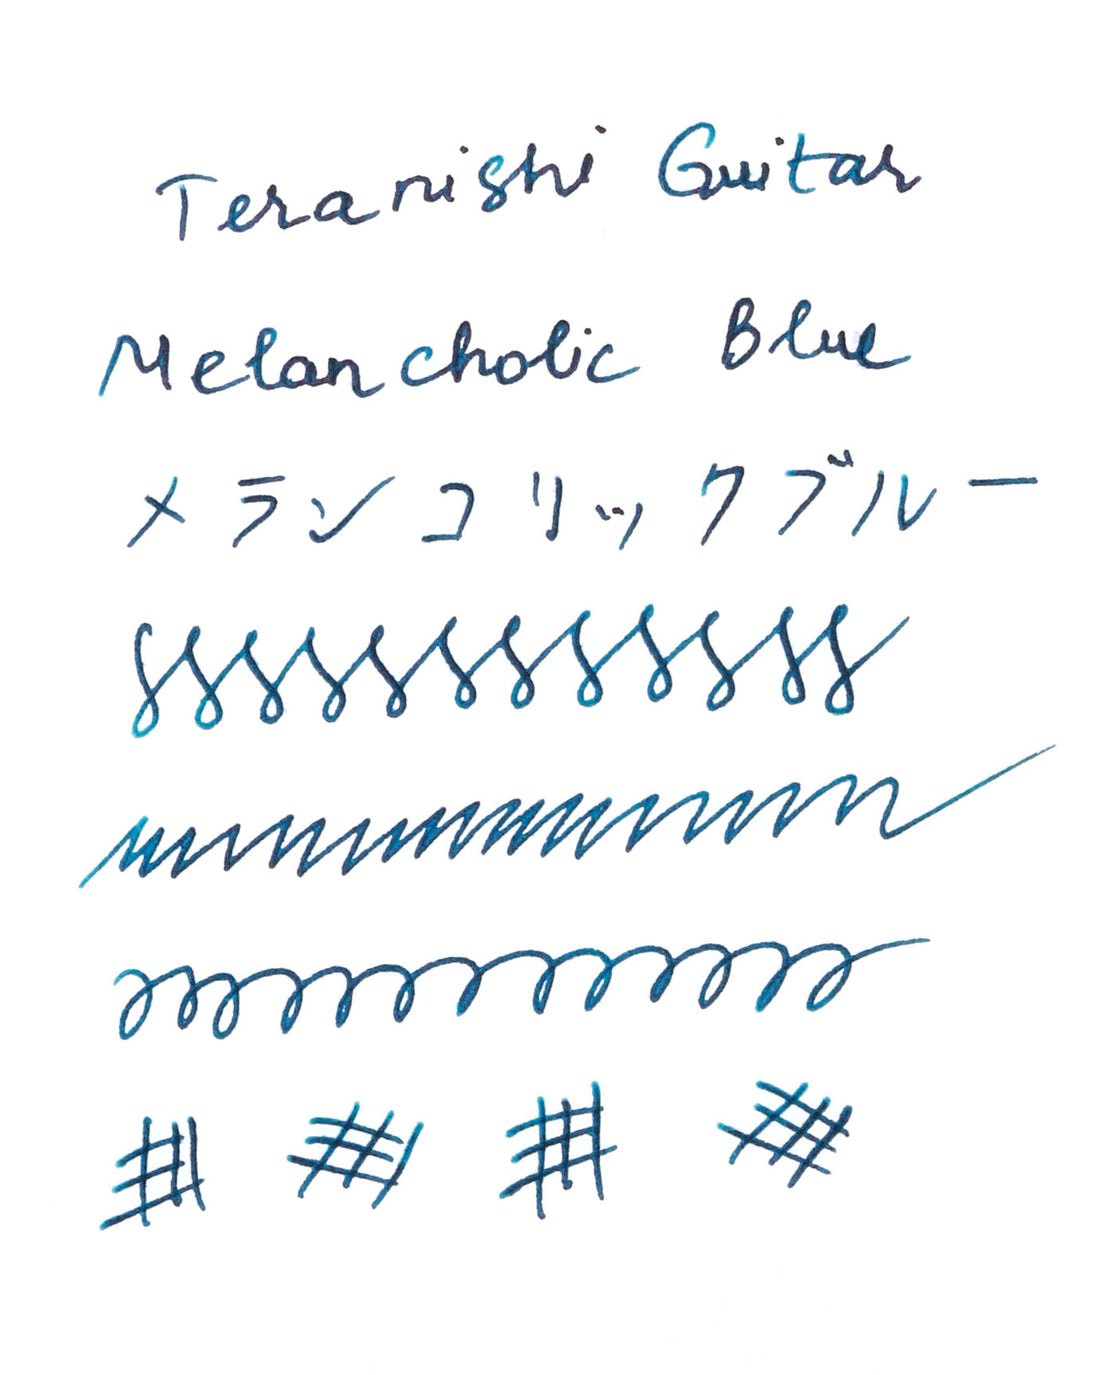 Teranishi Guitar
Melancholic Blue
メランコリックブルー